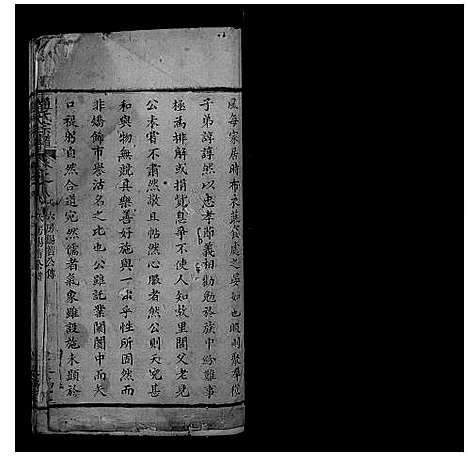 風每家居時布衣蔬食處之晏如也暇則聚羣從
子弟諄諄然以忠孝節義相勸勉於族中紛難事
極為排解或捐貲息爭不使人知故里閭父老見
公未嘗不肅然敬且帖然心服者然公則天究甚
和與物無競真樂善好施與一本乎性所固然而
非矯飾市譽沽名之比也公雖託業闤闠中而矢
口稷躬自然合道宛然儒者氣象雖設施未顯於